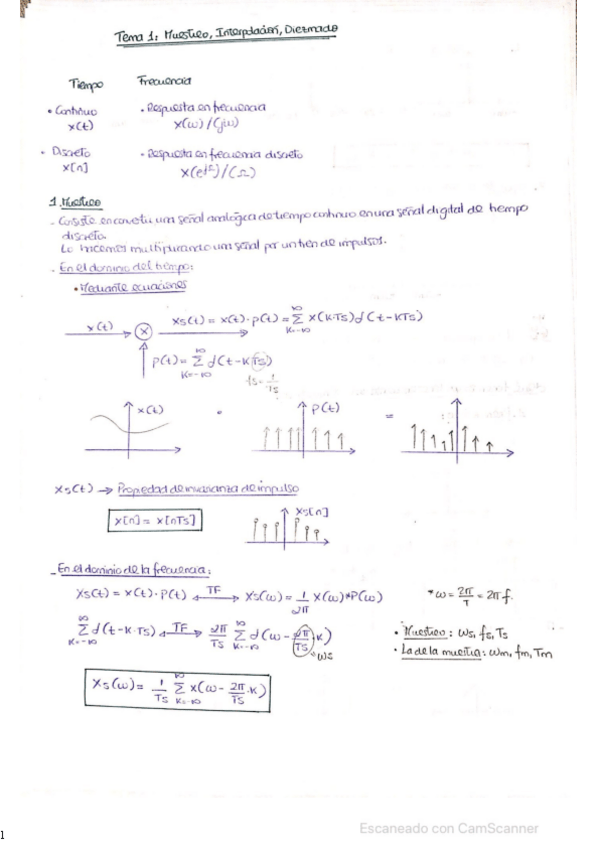 Tema 1: Muestreo, Interpolación, Diezmado
Tiempo Frecuencia
• Continuo · Respuesta en frecuencia
x(t) X(ω)/(jω)
• Discreto · Respuesta en frecuencia discreto
x[n] X(e^jΩ)/(Ω)
1. Muestreo
- Consiste en convertir una señal analógica de tiempo continuo en una señal digital de tiempo
discreto.
Lo hacemos multiplicando una señal por un tren de impulsos.
- En el dominio del tiempo:
• Mediante ecuaciones
x(t) ⊗ Xs(t) = x(t)·p(t) = ∑_{K=-∞}^{∞} x(K·Ts)d(t-KTs)
p(t) = ∑_{K=-∞}^{∞} d(t-KTs)
fs = 1/Ts
x(t) • P(t) =
Xs(t) → Propiedad de invarianza de impulso
x[n] = x[nTs] Xs[n]
- En el dominio de la frecuencia:
Xs(t) = x(t)·P(t) ←TF→ Xs(ω) = 1/2π X(ω)*P(ω) *ω = 2π/T = 2π f.
∑_{K=-∞}^{∞} d(t-K·Ts) ←TF→ 2π/Ts ∑_{K=-∞}^{∞} d(ω - 2π/Ts K) → ωs • Muestreo: ωs, fs, Ts
• La de la muestra: ωm, fm, Tm
Xs(ω) = 1/Ts ∑_{K=-∞}^{∞} X(ω - 2π/Ts·K)
1
Escaneado con CamScanner